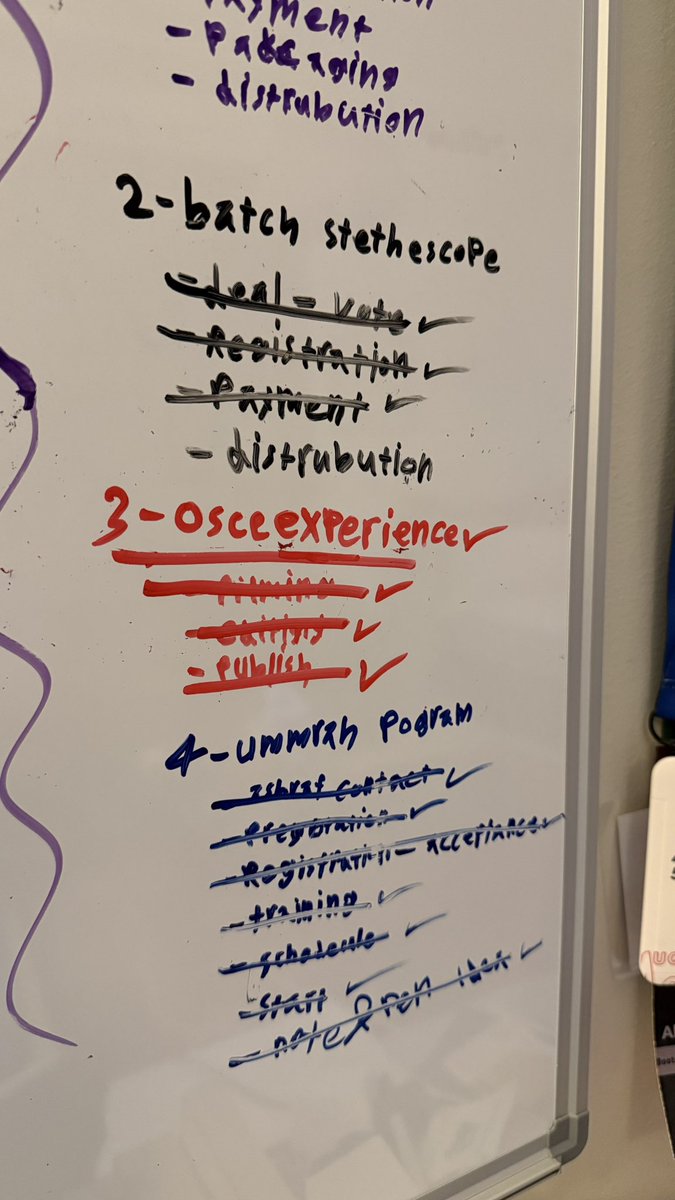 Payment
- Packaging
- distrubution
2-batch stethescope
- deal - vote ✓
- Registration ✓
- Payment ✓
- distrubution
3-osce experience ✓
- filming ✓
- Publish ✓
4-ummrah Pogram
contact ✓
- Registration - acceptance ✓
- training ✓
- start ✓
- note & pen idea ✓